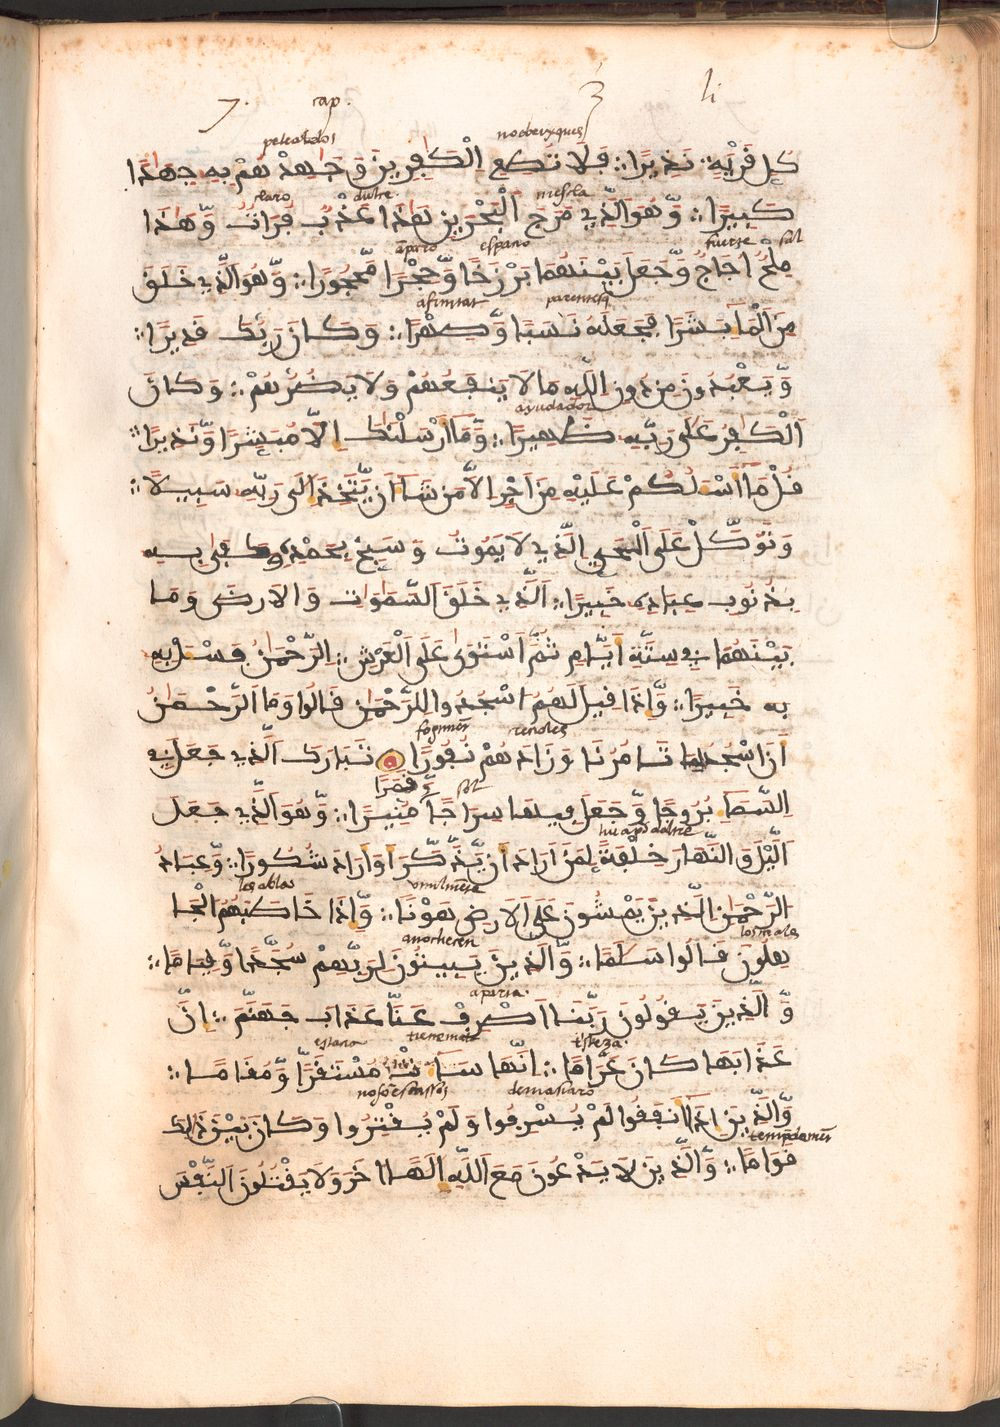 7. cap. 3 li
peleatdos no obeyxques
كُلِّ قَرْيَةٍ نَذِيرًا ؞ فَلَا تُطِعِ الْكَٰفِرِينَ وَجَٰهِدْهُمْ بِهِ جِهَادًا
claro dulce mescla
كَبِيرًا ؞ وَّهُوَ الَّذِي مَرَجَ الْبَحْرَيْنِ هَٰذَا عَذْبٌ فُرَاتٌ وَّهَٰذَا
aparo espatio fuerte sal
مِلْحٌ اُجَاجٌ وَّجَعَلَ بَيْنَهُمَا بَرْزَخًا وَّحِجْرًا مَّحْجُورًا ؞ وَّهُوَ الَّذِي خَلَقَ
afinitat parentesq
مِنَ الْمَاءِ بَشَرًا فَجَعَلَهُ نَسَبًا وَّصِهْرًا ؞ وَكَانَ رَبُّكَ قَدِيرًا ؞
وَّيَعْبُدُونَ مِن دُونِ اللَّهِ مَا لَا يَنفَعُهُمْ وَلَا يَضُرُّهُمْ ؞ وَكَانَ
ayudador
الْكَافِرُ عَلَى رَبِّهِ ظَهِيرًا ؞ وَّمَا أَرْسَلْنَٰكَ اِلَّا مُبَشِّرًا وَّنَذِيرًا ؞
قُلْ مَا أَسْـَٔلُكُمْ عَلَيْهِ مِنْ اَجْرٍ اِلَّا مَن شَآءَ اَنْ يَّتَّخِذَ اِلَى رَبِّهِ سَبِيلًا ؞
وَتَوَكَّلْ عَلَى الْحَيِّ الَّذِي لَا يَمُوتُ وَسَبِّحْ بِحَمْدِهِ وَكَفَىٰ بِهِ
بِذُنُوبِ عِبَادِهِ خَبِيرًا ؞ اَلَّذِي خَلَقَ السَّمَٰوَاتِ وَالَارْضَ وَمَا
بَيْنَهُمَا فِي سِتَّةِ اَيَّامٍ ثُمَّ اسْتَوَىٰ عَلَى الْعَرْشِ ؞ الرَّحْمَٰنُ فَسْـَٔلْ بِهِ
بِهِ خَبِيرًا ؞ وَّاِذَا قِيلَ لَهُمُ اسْجُدُوا لِلرَّحْمَٰنِ قَالُوا وَمَا الرَّحْمَٰنُ
fogimen rendoles
اَنَسْجُدُ لِمَا تَامُرُنَا وَزَادَهُمْ نُفُورًا تَبَارَكَ الَّذِي جَعَلَ فِي
وَّقَمَرًا sol
السَّمَاءِ بُرُوجًا وَّجَعَلَ فِيهَا سِرَاجًا مُّنِيرًا ؞ وَّهُوَ الَّذِي جَعَلَ
الَّيْلَ وَالنَّهَارَ خِلْفَةً لِمَنْ اَرَادَ اَنْ يَّذَّكَّرَ اَوْ اَرَادَ شُكُورًا ؞ وَّعِبَادُ
les ablas
الرَّحْمَٰنِ الَّذِينَ يَمْشُونَ عَلَى الَارْضِ هَوْنًا ؞ وَّاِذَا خَاطَبَهُمُ الْجَا
anocheren los males
هِلُونَ قَالُوا سَلَٰمًا ؞ وَّالَّذِينَ يَبِيتُونَ لِرَبِّهِمْ سُجَّدًا وَّقِيَامًا ؞
aparta
وَّالَّذِينَ يَقُولُونَ رَبَّنَا اَصْرِفْ عَنَّا عَذَابَ جَهَنَّمَ ؞ اِنَّ
estaria
عَذَابَهَا كَانَ غَرَامًا ؞ اِنَّهَا سَاءَتْ مُسْتَقَرًّا وَّمُقَامًا ؞
no so escassos demasiaro
وَّالَّذِينَ اِذَا اَنفَقُوا لَمْ يُسْرِفُوا وَلَمْ يُقْتِرُوا وَكَانَ بَيْنَ ذَٰلِكَ
قَوَامًا ؞ وَّالَّذِينَ لَا يَدْعُونَ مَعَ اللَّهِ اِلَٰهًا اٰخَرَ وَلَا يَقْتُلُونَ النَّفْسَ